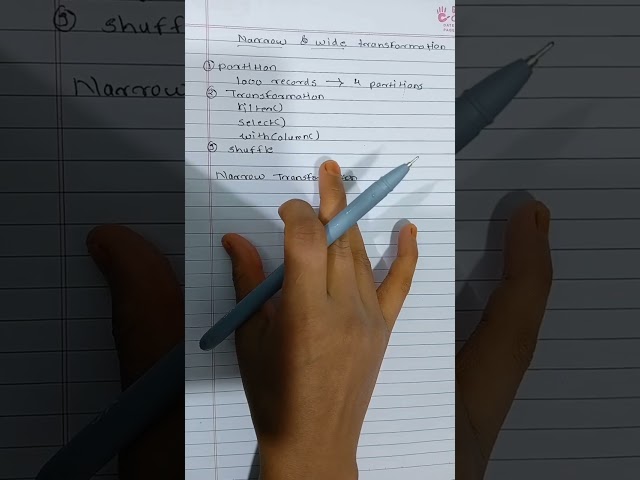 Narrow & wide transformation
① partition
1000 records → 4 partitions
② Transformation
filter()
select()
withColumn()
③ shuffle
Narrow Transformation